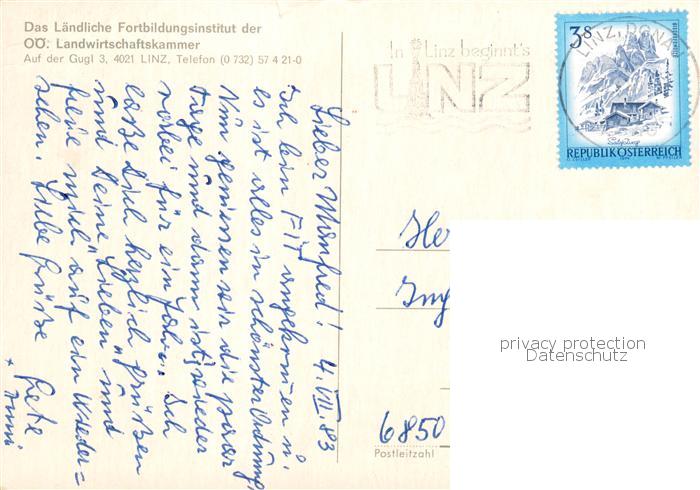 Das Ländliche Fortbildungsinstitut der
OÖ. Landwirtschaftskammer
Auf der Gugl 3, 4021 LINZ, Telefon (0 732) 57 4 21-0
In Linz beginnt's
LINZ
LINZ, DONAU
3S
REPUBLIK ÖSTERREICH
Lieber Manfred! 4.VII 83
Ich bin FIT angekommen u.
es ist alles in schönster Ordnung
Nun geniessen wir die paar
Tage und dann ist wieder
vorbei für ein Jahr. Ich
laße Dich herzlich grüßen
und Deine "Lieben" und
freue mich auf ein Wieder=
sehen. Liebe Grüße
He
Ing
6850
Postleitzahl
privacy protection
Datenschutz